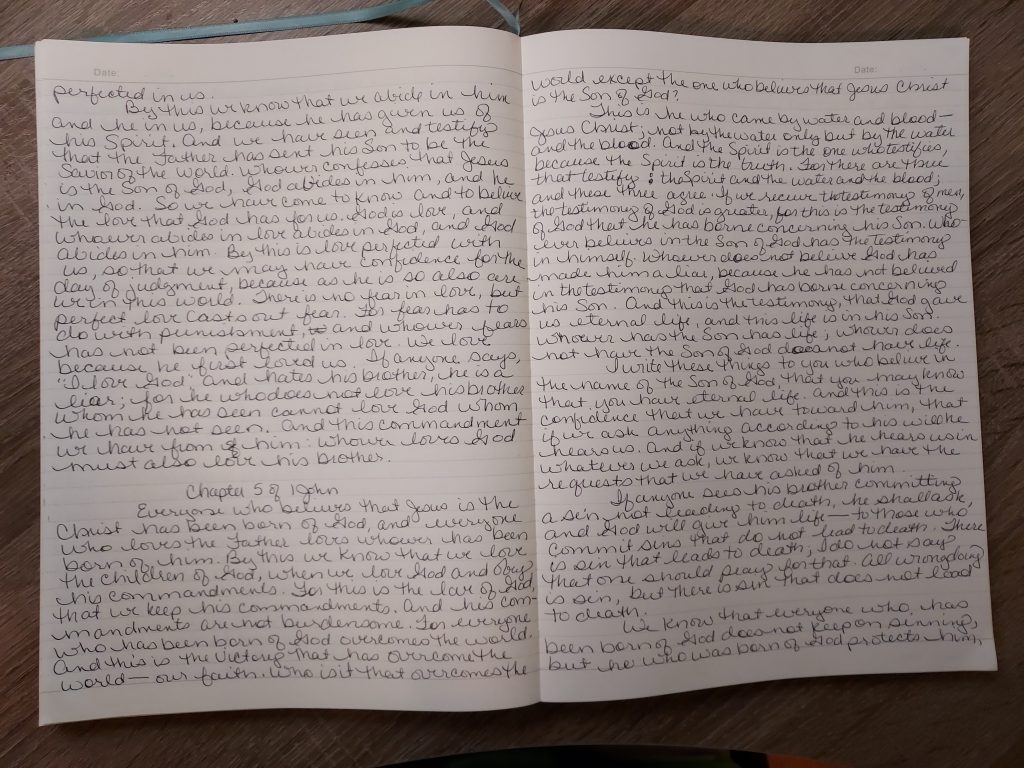 Date:
perfected in us.
By this we know that we abide in him
and he in us, because he has given us of
his Spirit. And we have seen and testify
that the Father has sent his Son to be the
Savior of the world. Whoever confesses that Jesus
is the Son of God, God abides in him, and he
in God. So we have come to know and to believe
the love that God has for us. God is love, and
whoever abides in love abides in God, and God
abides in him. By this is love perfected with
us, so that we may have confidence for the
day of judgment, because as he is so also are
we in this world. There is no fear in love, but
perfect love casts out fear. For fear has to
do with punishment, and whoever fears
has not been perfected in love. We love
because he first loved us. If anyone says,
"I love God" and hates his brother, he is a
liar; for he who does not love his brother
whom he has seen cannot love God whom
he has not seen. And this commandment
we have from him: whoever loves God
must also love his brother.
Chapter 5 of 1 John
Everyone who believes that Jesus is the
Christ has been born of God, and everyone
who loves the Father loves whoever has been
born of him. By this we know that we love
the children of God, when we love God and obey
his commandments. For this is the love of God,
that we keep his commandments. And his com-
mandments are not burdensome. For everyone
who has been born of God overcomes the world.
And this is the victory that has overcome the
world — our faith. Who is it that overcomes the
Date:
world except the one who believes that Jesus Christ
is the Son of God?
This is he who came by water and blood —
Jesus Christ; not by the water only but by the water
and the blood. And the Spirit is the one who testifies,
because the Spirit is the truth. For there are three
that testify: the Spirit and the water and the blood;
and these three agree. If we receive the testimony of men,
the testimony of God is greater, for this is the testimony
of God that he has borne concerning his Son. Who
ever believes in the Son of God has the testimony
in himself. Whoever does not believe God has
made him a liar, because he has not believed
in the testimony that God has borne concerning
his Son. And this is the testimony, that God gave
us eternal life, and this life is in his Son.
Whoever has the Son has life; whoever does
not have the Son of God does not have life.
I write these things to you who believe in
the name of the Son of God, that you may know
that you have eternal life. And this is the
confidence that we have toward him, that
if we ask anything according to his will he
hears us. And if we know that he hears us in
whatever we ask, we know that we have the
requests that we have asked of him.
If anyone sees his brother committing
a sin not leading to death, he shall ask,
and God will give him life — to those who
commit sins that do not lead to death. There
is sin that leads to death; I do not say
that one should pray for that. All wrongdoing
is sin, but there is sin that does not lead
to death.
We know that everyone who has
been born of God does not keep on sinning,
but he who was born of God protects him,